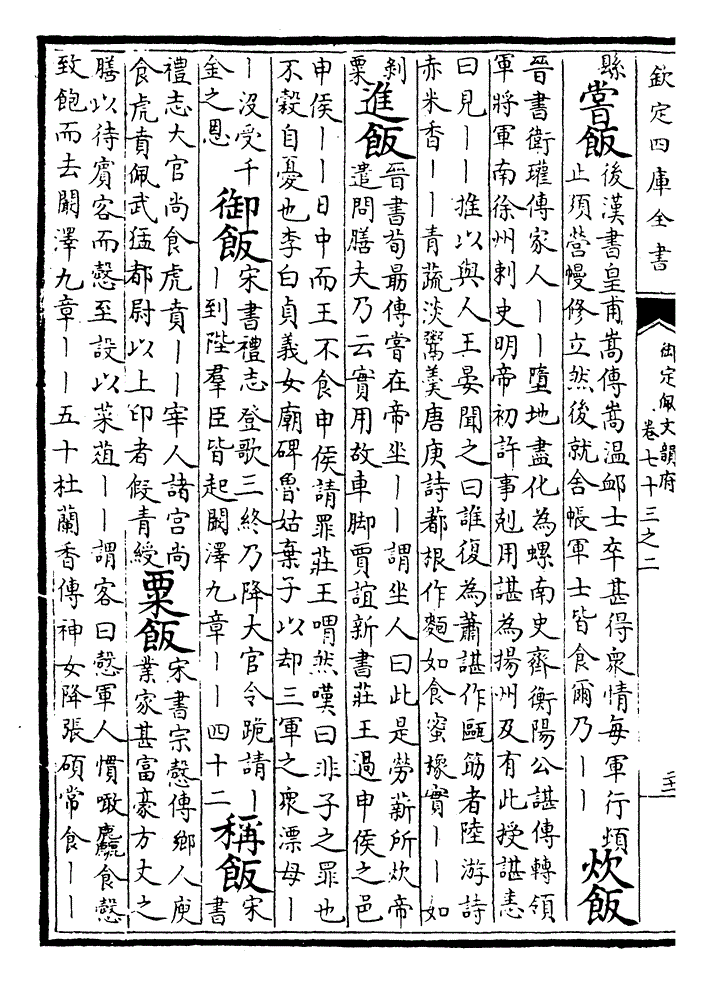 欽定四庫全書
御定佩文韻府
卷七十三之二
二十一
縣
嘗飯
後漢書皇甫嵩傳嵩溫卹士卒甚得衆情每軍行頓
止須營幔修立然後就舍帳軍士皆食爾乃——
炊飯
晉書衛瓘傳家人——墮地盡化為螺南史齊衡陽公諶傳轉領
軍將軍南徐州刺史明帝初許事剋用諶為揚州及有此授諶恚
曰見——推以與人王晏聞之曰誰復為蕭諶作甌筯者陸游詩
赤米香——青蔬淡鬻羹唐庚詩蘇根作麵如食蜜橡實——如
剝
粟
進飯
晉書荀勗傳嘗在帝坐——謂坐人曰此是勞薪所炊帝
遣問膳夫乃云實用故車脚賈誼新書莊王過申侯之邑
申侯——日中而王不食申侯請罪莊王喟然嘆曰非子之罪也
不穀自憂也李白貞義女廟碑魯姑棄子以却三軍之衆漂母—
—沒受千
金之恩
御飯
宋書禮志登歌三終乃降大官令跪請—
—到陛羣臣皆起闕澤九章——四十二
稱飯
宋
書
禮志大官尚食虎賁——宰人諸宫尚
食虎賁佩武猛都尉以上印者假青綬
粟飯
宋書宗慤傳鄉人庾
業家甚富豪方丈之
膳以待賓客而慤至設以菜葅——謂客曰慤軍人慣噉麤食慤
致飽而去闞澤九章——五十杜蘭香傳神女降張碩常食——